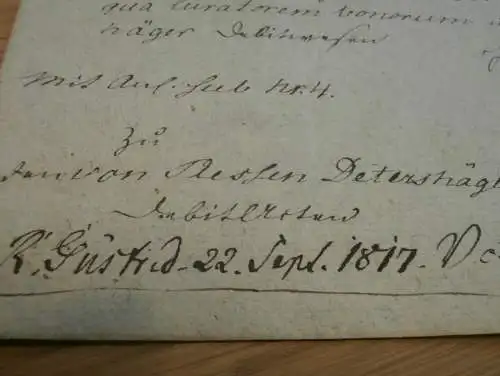 qua Curatorem bonorum
häger Debitwesen
Mit Anl. sub Nr. 4.
Zu
von Plessen Detershäg
Debit Acten
R. Güstrid. 22. Sept. 1817.